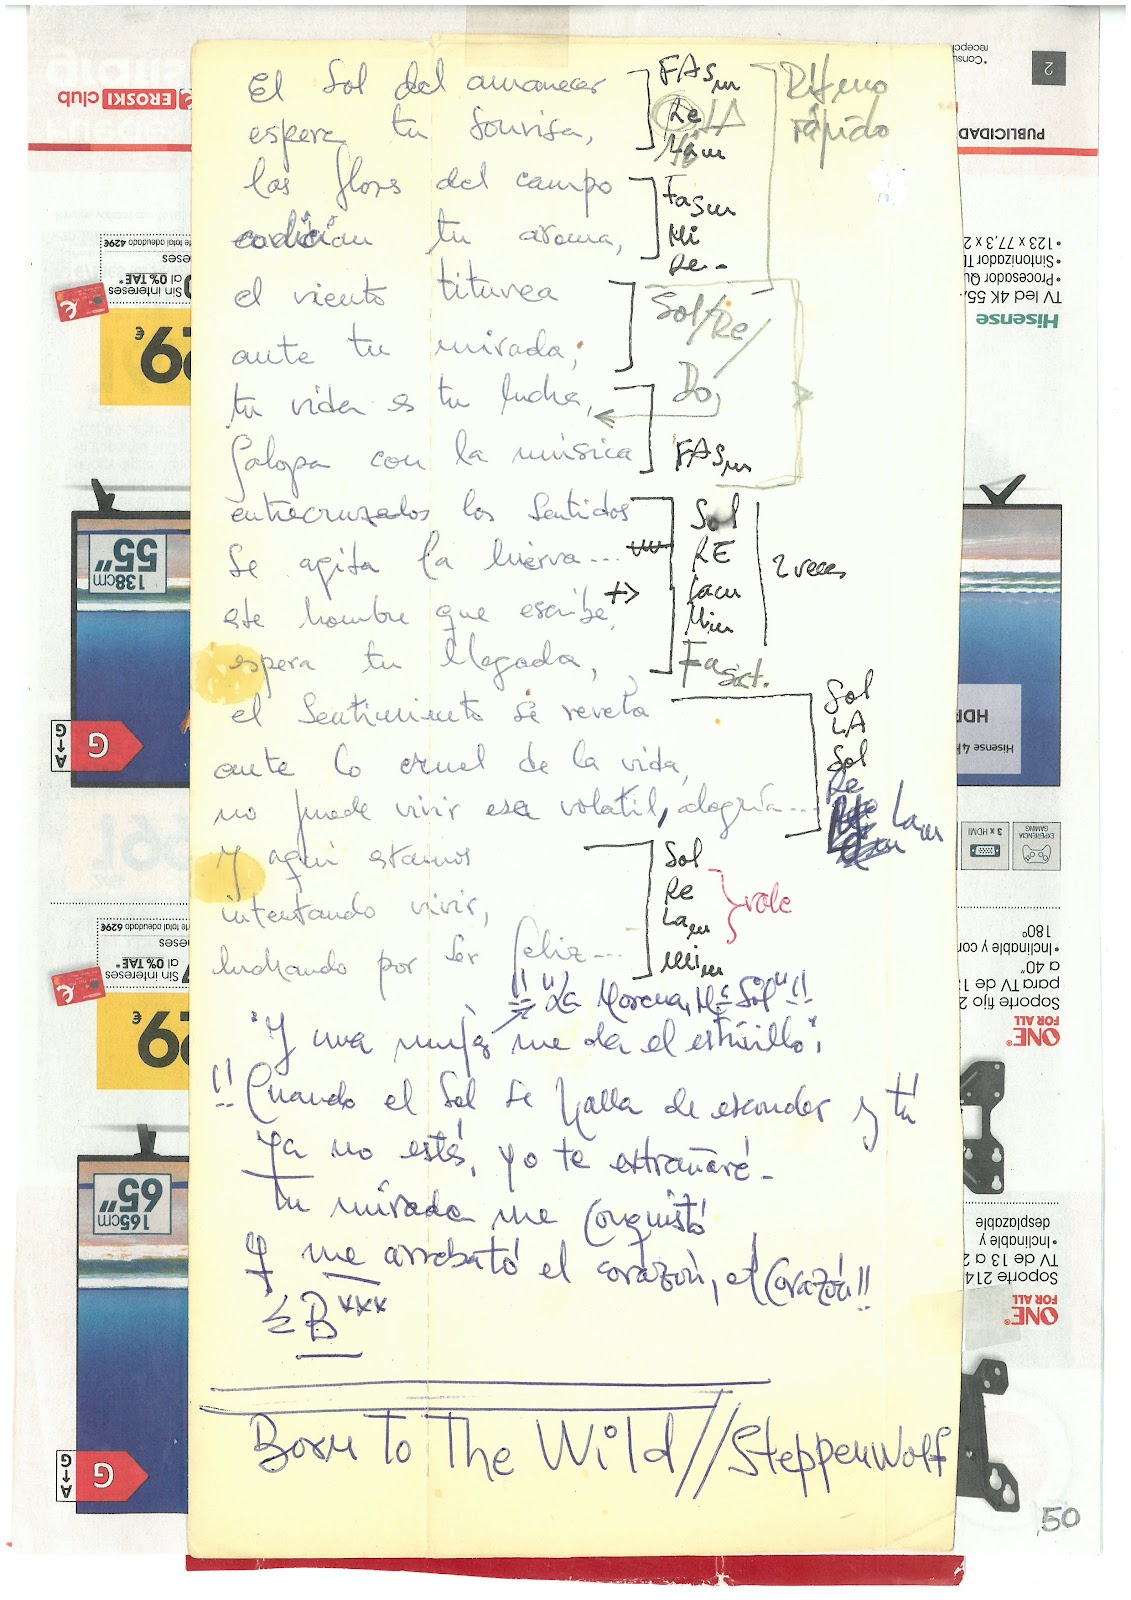 El Sol del amanecer
espera tu Sonrisa,
las flores del campo
codician tu aroma,
el viento titurea
ante tu mirada,
tu vida es tu lucha,
Galopa con la música
entrecruzados los Sentidos
Se agita la hierva...
este hombre que escribe,
espera tu llegada,
el Sentimiento se revela
ante lo cruel de la vida,
no puede vivir esa volatil, alegría...
Y aquí estamos
intentando vivir,
luchando por ser feliz...
FASm
Re LA
Fasm
Mi
Re-
Ritmo
rápido
Sol/Re/
Do,
FASm
Sol
RE
Lam
Mim
2 veces
Fa Sost.
Sol
LA
Sol
Re
Lam
Sol
Re
Lam
Mim
vale
!! "La Morena, Mª Sol" !!
"Y una mujer me da el estribillo".
!! Cuando el Sol se halla de esconder y tú
ya no estés, yo te extrañaré-
tu mirada me conquistó
Y me arrobató el corazón, el Corazón!!
B***
Born to The Wild//SteppenWolf
50
2
PUBLICIDAD
EROSKI club
Hisense
TV led 4K 55
• Procesador Qu
• Sintonizador T
• 123 x 77,3 x 2
Sin intereses
al 0% TAE*
te total adeudado 429€
29€
55"
138cm
A→G
G
HDR
Hisense 4K
3 x HDMI
EXPERIENCIA
GAMING
ONE
FOR ALL
Soporte fijo 2
para TV de 13
a 40"
• Inclinable y con
180°
Sin intereses
al 0% TAE*
te total adeudado 629€
29€
65"
165cm
A→G
G
ONE
FOR ALL
Soporte 214
TV de 13 a 2
• Inclinable y
desplazable